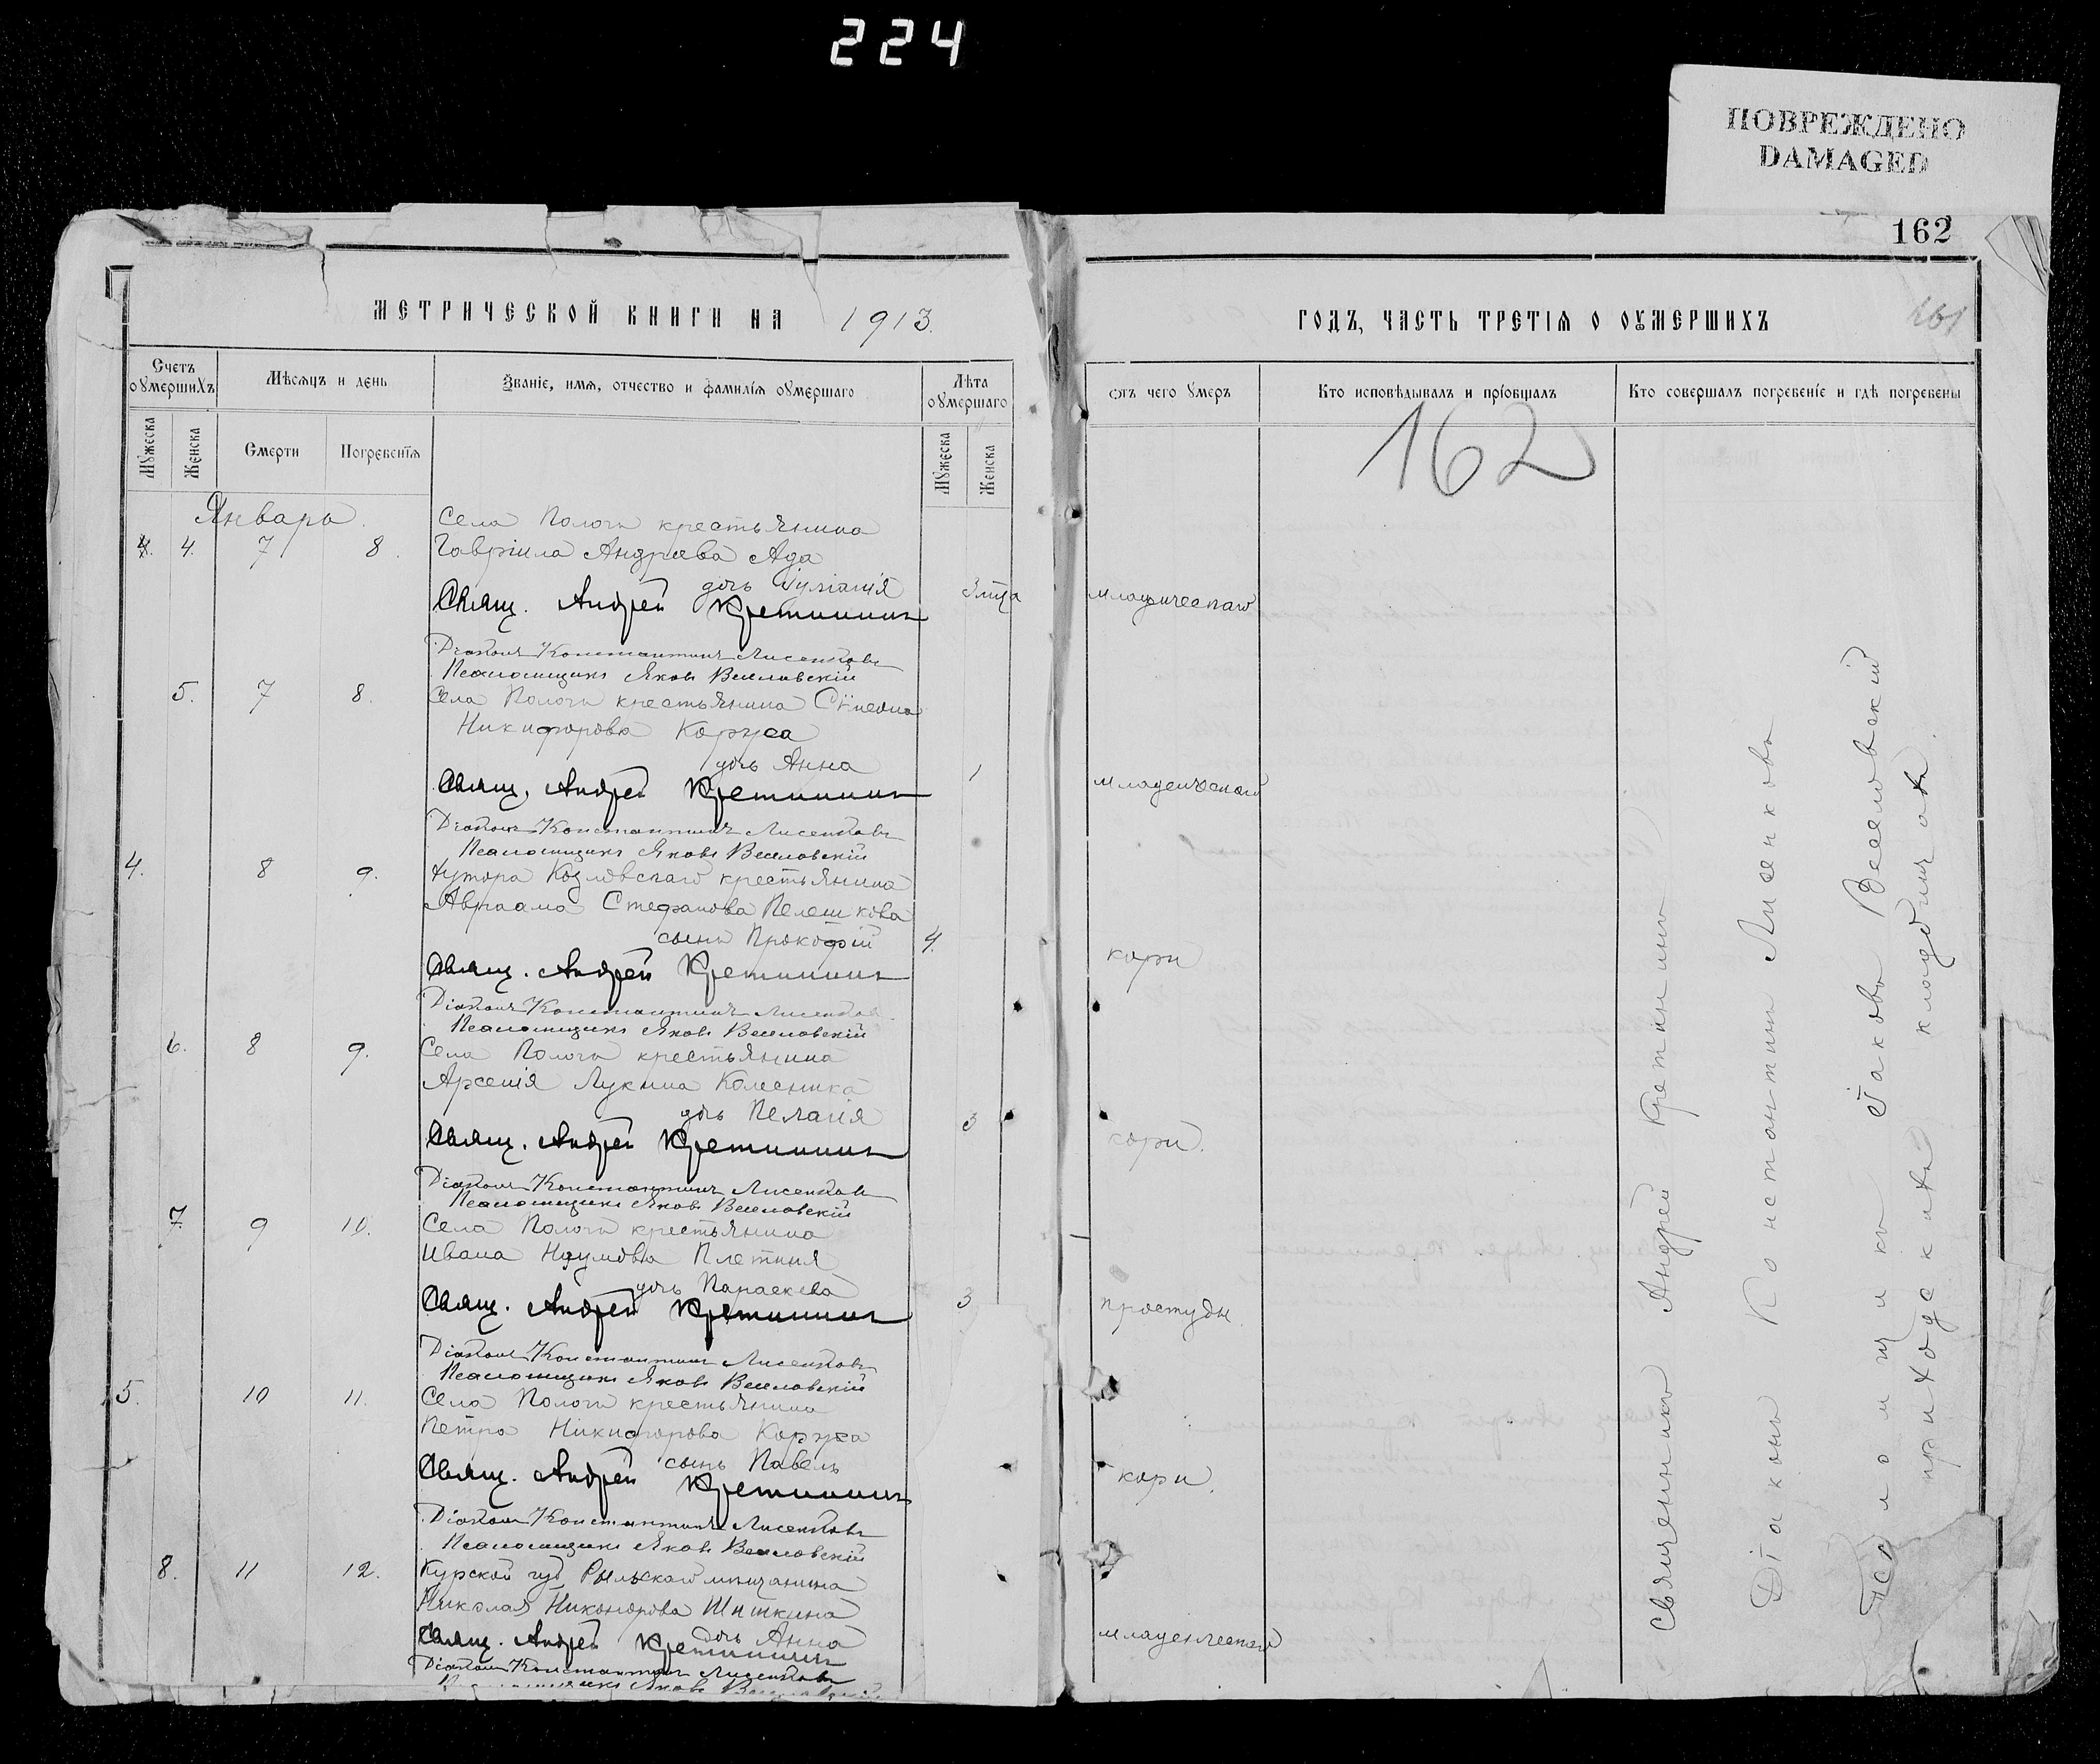 224
ПОВРЕЖДЕНО
DAMAGED
162
МЕТРИЧЕСКОЙ КНИГИ НА 1913.
Счетъ оумершихъ
Мѣсяцъ и день
Званіе, имя, отчество и фамилія оумершаго
Лѣта оумершаго
Мужеска
Женска
Смерти
Погребенія
Мужеска
Женска
Январь
Села Пологи крестьянина
4. 4. 7 8. Гавріила Андреева Ада
дочь
Свящ. Андрей Кретининъ
Діаконъ Константинъ Лисенковъ
Псаломщикъ Яковъ Веселовскій
5. 7 8. Села Пологи крестьянина
Никифорова Коржа
дочь Анна 1
Свящ. Андрей Кретининъ
Діаконъ Константинъ Лисенковъ
Псаломщикъ Яковъ Веселовскій
4. 8 9. Хутора Козловскаго крестьянина
Авраама Стефанова Пелешкова
сынъ Прокофій 4.
Свящ. Андрей Кретининъ
Діаконъ Константинъ Лисенковъ
Псаломщикъ Яковъ Веселовскій
6. 8 9. Села Пологи крестьянина
Арсенія Лукина Колесника
дочь Пелагія 3
Свящ. Андрей Кретининъ
Діаконъ Константинъ Лисенковъ
Псаломщикъ Яковъ Веселовскій
7. 9 10. Села Пологи крестьянина
Ивана Наумова Плетня
дочь Параскева 3
Свящ. Андрей Кретининъ
Діаконъ Константинъ Лисенковъ
Псаломщикъ Яковъ Веселовскій
5. 10 11. Села Пологи крестьянина
Петра Никифорова Коржа
сынъ Павелъ
Свящ. Андрей Кретининъ
Діаконъ Константинъ Лисенковъ
Псаломщикъ Яковъ Веселовскій
8. 11 12. Курской губ Рыльскаго мѣщанина
Николая Никонорова Шишкина
дочь Анна
Свящ. Андрей Кретининъ
Діаконъ Константинъ Лисенковъ
Псаломщикъ Яковъ Веселовскій
ГОДЪ, ЧАСТЬ ТРЕТІЯ О ОУМЕРШИХЪ
161
отъ чего умеръ
Кто исповѣдывалъ и пріобщалъ
Кто совершалъ погребеніе и гдѣ погребены
162
младенческаго
кори
кори.
простуды
кори.
младенческаго
Священникъ Андрей Кретининъ
Діаконъ Константинъ Лисенковъ
Псаломщикъ Іаковъ Веселовскій
приходскихъ кладбищахъ.